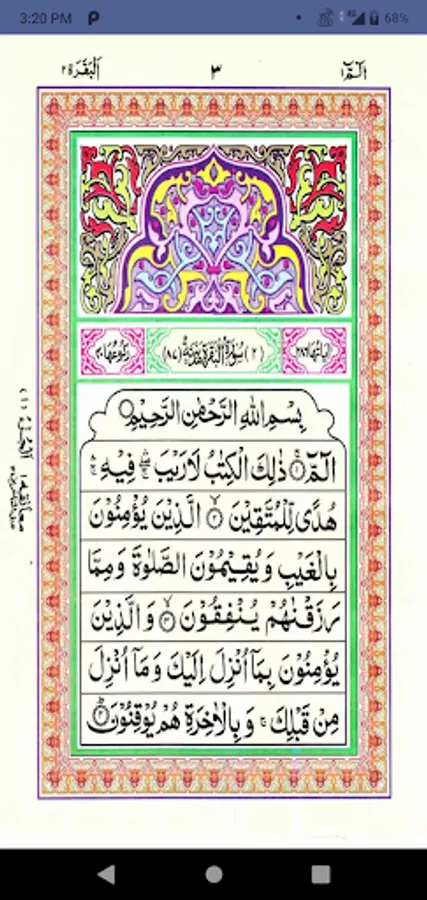 3:20 PM 68%
الٓمّٓ ١ ٣ اَلْبَقَرَة ٢
اٰيَاتُهَا ٢٨٦ (٢) سُوْرَةُ الْبَقَرَةِ مَدَنِيَّةٌ (٨٧) رُكُوْعَاتُهَا ٤٠
بِسْمِ اللّٰهِ الرَّحْمٰنِ الرَّحِيْمِ
الٓمّٓ ۝١ ذٰلِكَ الْكِتٰبُ لَا رَيْبَ ۛ فِيْهِ ۛ
هُدًى لِّلْمُتَّقِيْنَ ۝٢ الَّذِيْنَ يُؤْمِنُوْنَ
بِالْغَيْبِ وَيُقِيْمُوْنَ الصَّلٰوةَ وَمِمَّا
رَزَقْنٰهُمْ يُنْفِقُوْنَ ۝٣ وَالَّذِيْنَ
يُؤْمِنُوْنَ بِمَآ اُنْزِلَ اِلَيْكَ وَمَآ اُنْزِلَ
مِنْ قَبْلِكَ ۚ وَبِالْاٰخِرَةِ هُمْ يُوْقِنُوْنَ ۝٤